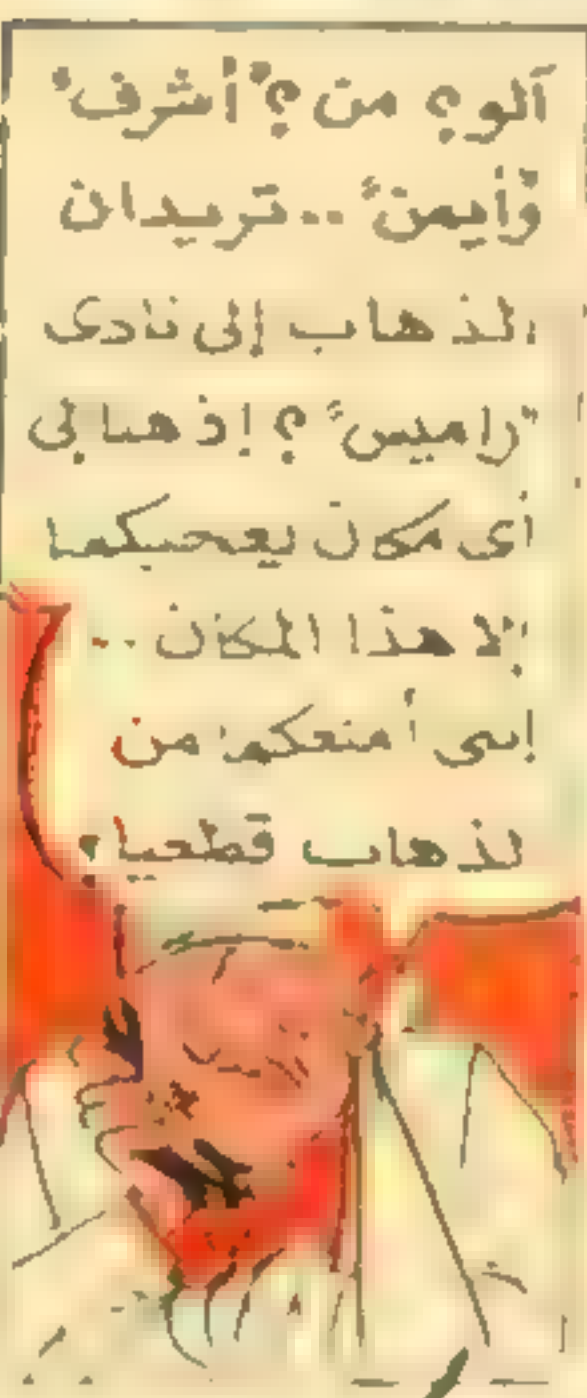 آلو؟ من؟ "أشرف"
و"أيمن" .. تريدان
الذهاب إلى نادى
"راميس"؟ إذهبا لى
أى مكان يعجبكما
إلا هذا المكان ..
إنى أمنعكما من
لذهاب قطعيا!